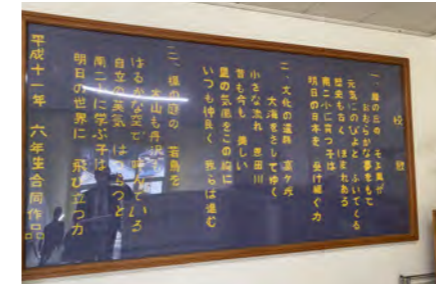 校歌
一、陽の出の そよ風が
おおらかな夢をもて
元気にのびよと ふいてくる
校舎も古く ほまれある
南二小に育つ子は
明日の日本を 受け継ぐ力
二、文化の遺跡 高ヶ坂
大海をさしてゆく
小さな流れ 恩田川
昔も今も 美しい
里の気風をこの胸に
いつも仲良く 我らは進む
三、
大山も丹沢も
はるかな空で 呼んでいる
自立の英気 はつらつと
南二小に学ぶ子は
明日の世界に 飛び立つ力
平成十一年 六年生合同作品